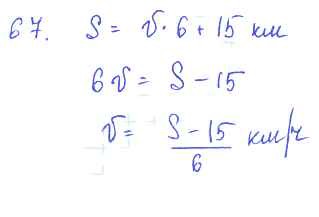 67. S = v · 6 + 15 км
6v = S - 15
v = (S - 15)/6 км/ч